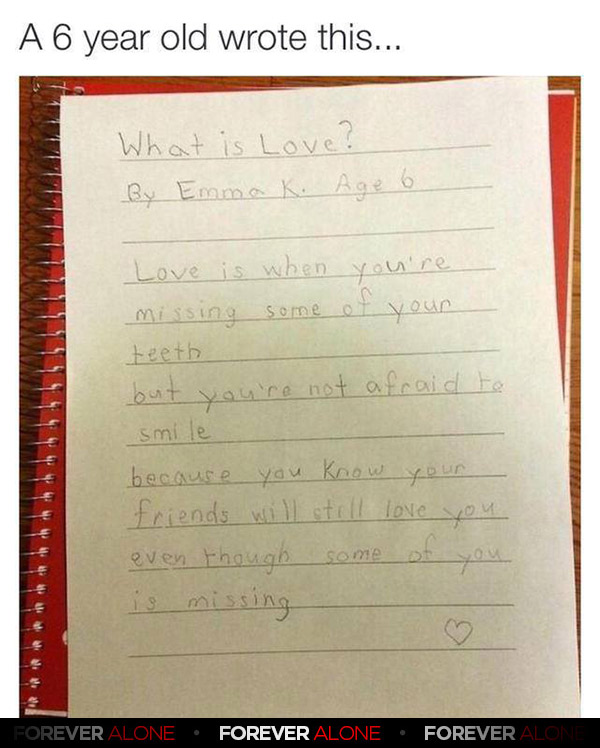 A 6 year old wrote this...
What is Love?
By Emma K. Age 6
Love is when you're
missing some of your
teeth
but you're not afraid to
smile
because you know your
friends will still love you
even though some of you
is missing
FOREVER ALONE • FOREVER ALONE • FOREVER ALONE